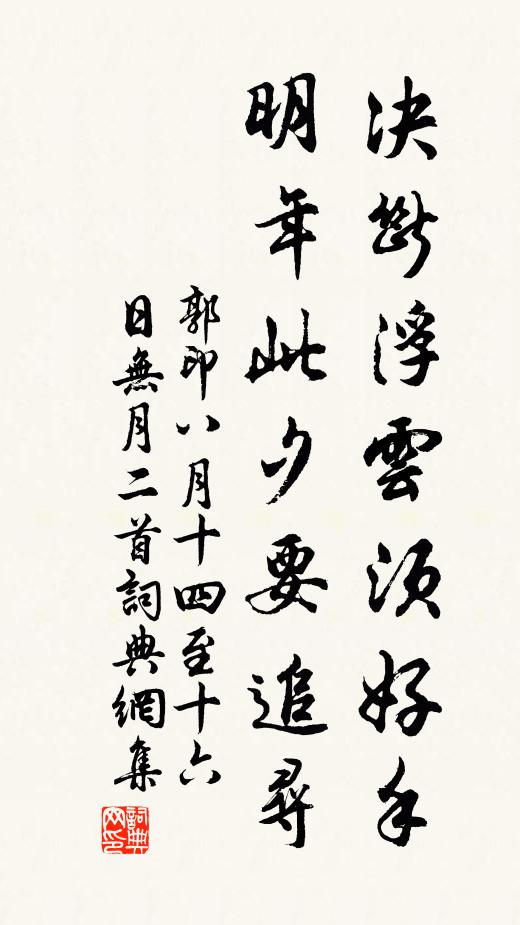 决断浮雲須好手
明年此夕要追尋
郭印八月十四至十六
日無月二首詞典網集
詞典
网印